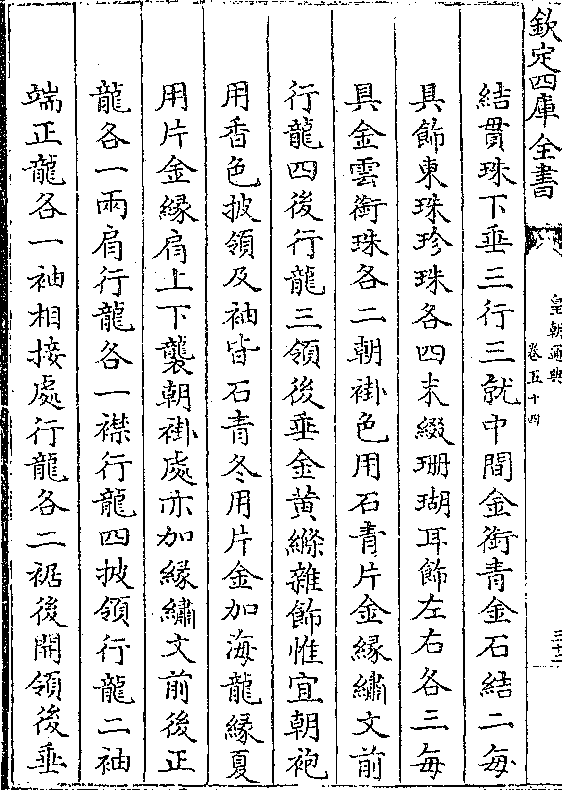 欽定四庫全書
皇朝通典
卷五十四
三十二
結貫珠下垂三行三就中間金銜青金石結二每
具飾東珠珍珠各四末綴珊瑚耳飾左右各三每
具金雲銜珠各二朝褂色用石青片金緣繡文前
行龍四後行龍三領後垂金黄縧雜飾惟宜朝袍
用香色披領及袖皆石青冬用片金加海龍緣夏
用片金緣肩上下襲朝褂處亦加緣繡文前後正
龍各一兩肩行龍各一襟行龍四披領行龍二袖
端正龍各一袖相接處行龍各二裾後開領後垂